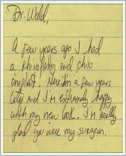 Dr. Wold,
A few years ago I had
a rhinoplasty and chin
implant. Here it is a few years
later and I'm extremely happy
with my new look. I'm really
glad you were my surgeon.